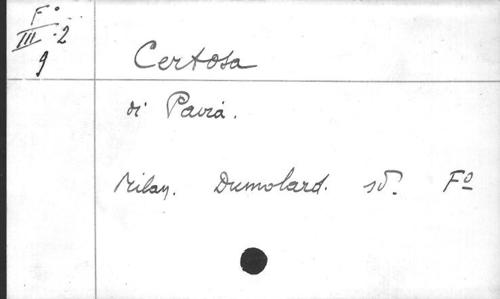 Fº
III.2
9
Certosa
di Pavia.
Milan. Dumolard. sd. Fº